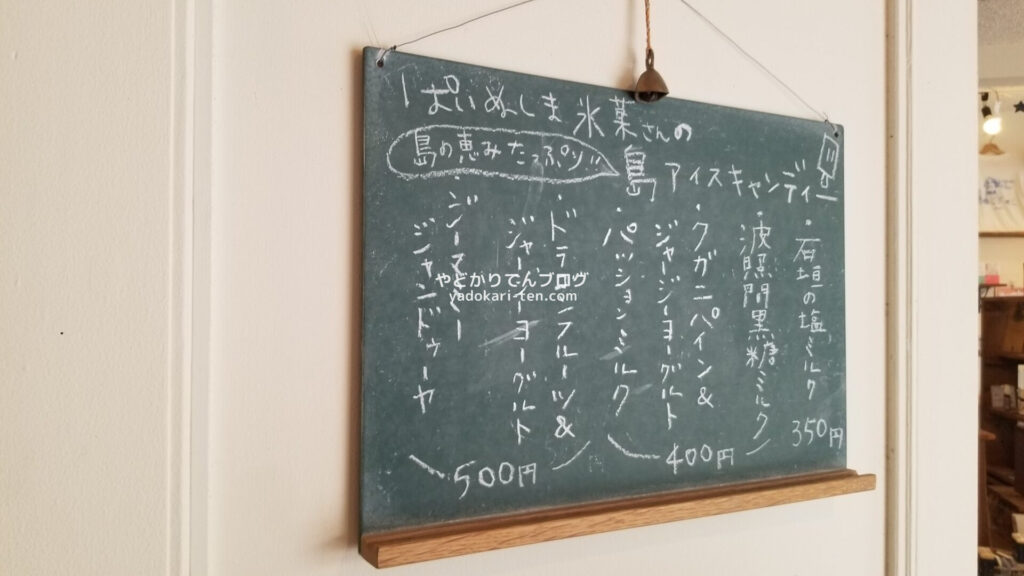 ぱいぬしま氷菓さんの
島の恵みたっぷり
島アイスキャンディー
・石垣の塩ミルク
350円
・波照間黒糖ミルク
・クガニパイン&
ジャージーヨーグルト
・パッションミルク
400円
・ドラゴンフルーツ&
ジャージーヨーグルト
・ジーマミー
ジャンドゥーヤ
500円
やどかりてんブログ
yadokari-ten.com